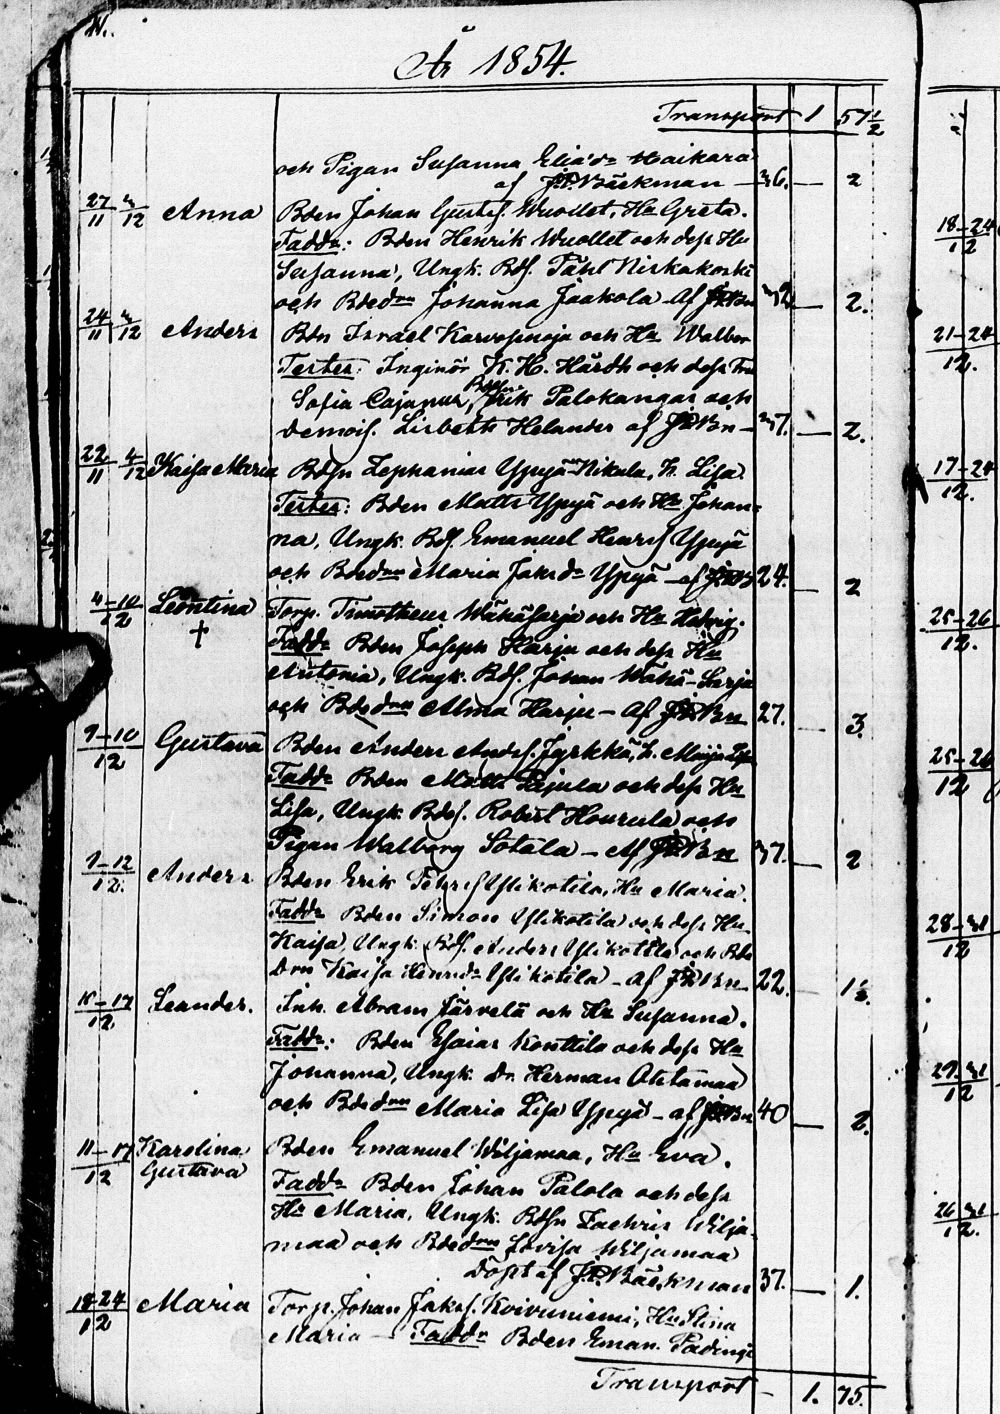 År 1854.
Transport 1 57 1/2
och Pigan Susanna Elias dr Haikara
af J.P. Bäckman — 36. — 2
27/11 3/12 Anna Bden Johan Gustaf. Wuollet, Hu Greta.
Fadd: Bden Henrik Wuollet och dess Hu
Susanna, Ungk. Bds. Pähl Niskakoski
och Bdedn Johanna Jaakola af — 2.
24/11 3/12 Anders Bdn Israel Karvosenoja och Hu Walbor
Testes: Inginör K. H. Hårdh och dess Fru
Sofia Cajanus, Erik Palokangas och
Demois. Lisbeth Helander af — 37. — 2.
22/11 4/12 Kaisa Maria Bdsn Zephanias Ypyä Nikula, h. Lisa.
Testes: Bden Matts Ypyä och Hu Johan=
na, Ungk. Bds. Emanuel Henrs Ypyä
och Bdedn Maria Jaks dr Ypyä af 24. — 2
4–10/12 Leontina Torp. Timotheus Wähäsarja och Hu Hedvig.
† Fadd Bden Joseph Harju och dess Hu
Antonia, Ungk. Bds. Johan Wähä-Sarja
och Bdedn Alma Harju — af 27. — 3.
9–10/12 Gustava Bden Anders Anders. Jyrkkä, h. Maija
Fadd Bden Matts Pajula och dess Hu
Lisa, Ungk. Bds. Robert Hourula och
Pigan Walborg Sotala — af 37. — 2
9–12/12. Anders Bden Erik Pehrs Ylikotila, Hu Maria.
Fadd Bden Simon Ylikotila och dess Hu
Kaisa, Ungk. Bds. Anders Ylikotila och Bde
Drn Kaisa Henrs dr Ylikotila — af 22. — 1 1/2.
–17/12 Leander. Inh. Abram Järvelä och Hu Susanna.
Fadd: Bden Esaias Konttila och dess Hu
Johanna, Ungk. Dr. Herman Ohtamaa
och Bdedn Maria Lisa Ypyä — af 40 — 2.
11–17/12 Karolina Bden Emanuel Wiljamaa, Hu Eva.
Gustava
Fadd Bden Johan Palola och dess
Hu Maria, Ungk. Bdsn Zachris Wilja-
maa och Bdedn Lovisa Wiljamaa
Döpt af J.P. Bäckman 37. — 1.
18–24/12 Maria Torp. Johan Jakos. Koivuniemi, Hu Stina
Maria — Fadd Bden Eman. Pading
Transport — 1. 75.
18–24/12
21–24/12.
17–24/12.
25–26/12.
25–26/12
28–31/12
29–31/12
26–31/12.